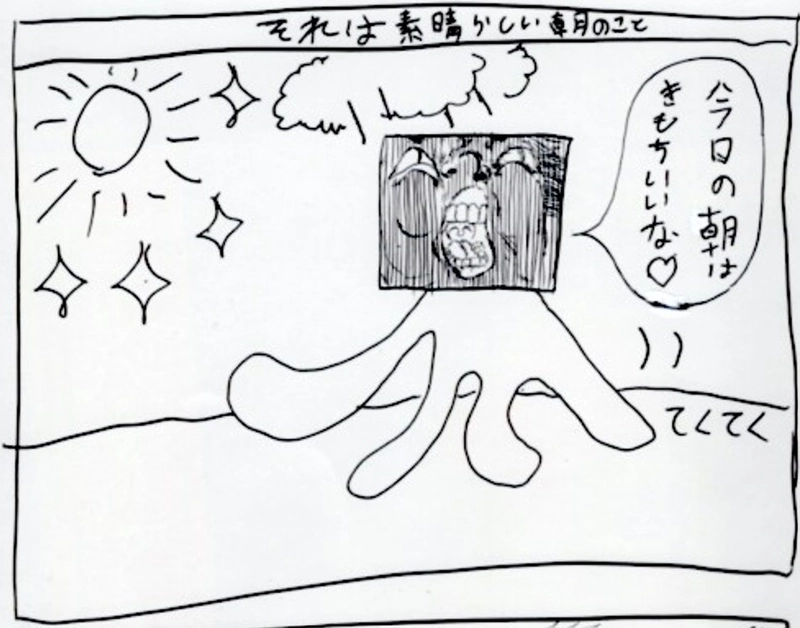 それは素晴らしい朝のこと
今日の朝は
きもちいいな♡
てくてく